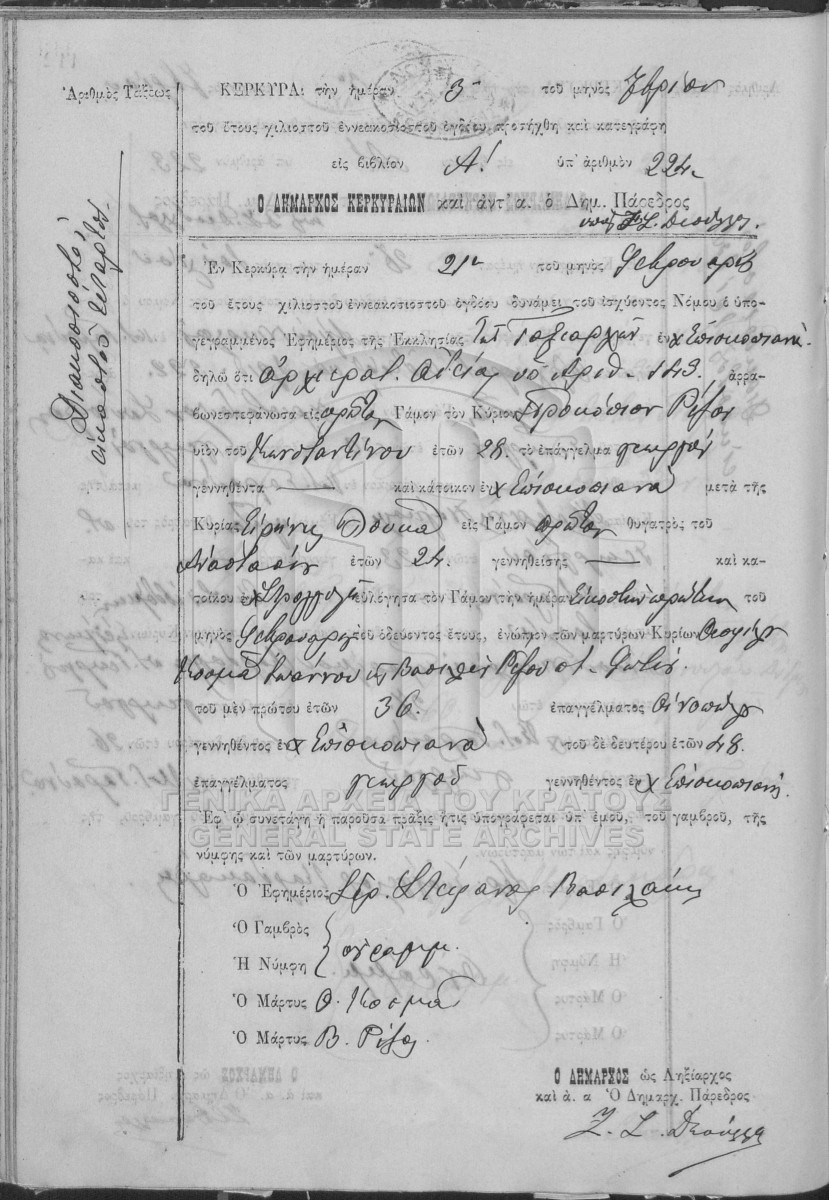 Ἀριθμὸς Τάξεως
Διακοσιοστὸς
εἰκοστὸς τέταρτος
ΚΕΡΚΥΡΑ: τὴν ἡμέραν 3 τοῦ μηνὸς 7βρίου
τοῦ ἔτους χιλιοστοῦ ἐννεακοσιοστοῦ ὀγδόου προσήχθη καὶ κατεγράφη
εἰς βιβλίον Α! ὑπ' ἀριθμὸν 224
Ο ΔΗΜΑΡΧΟΣ ΚΕΡΚΥΡΑΙΩΝ καὶ ἀντ' α. ὁ Δημ. Πάρεδρος
Ἐν Κερκύρᾳ τὴν ἡμέραν 21 τοῦ μηνὸς Φεβρουαρίου
τοῦ ἔτους χιλιοστοῦ ἐννεακοσιοστοῦ ὀγδόου δυνάμει τοῦ ἰσχύοντος Νόμου ὁ ὑπο-
γεγραμμένος Ἐφημέριος τῆς Ἐκκλησίας τῶν Ταξιαρχῶν ἐν χ Ἐπισκοπιανὰ
δηλῶ ὅτι ἀρχιερατ. ἀδείᾳ ὑπ' Ἀριθ. 143. ἀρρα-
βωνεστεφάνωσα εἰς πρῶτον Γάμον τὸν Κύριον Προκόπιον Ρίζον
υἱὸν τοῦ Κωνσταντίνου ἐτῶν 28. τὸ ἐπάγγελμα γεωργὸν
γεννηθέντα — καὶ κάτοικον ἐν χ Ἐπισκοπιανὰ μετὰ τῆς
Κυρίας Εἰρήνης Λουκᾶ εἰς Γάμον πρῶτον θυγατρὸς τοῦ
Ἀναστασίου ἐτῶν 24. γεννηθείσης — καὶ κα-
τοίκου ἐν χ Στρογγυλῆ εὐλόγησα τὸν Γάμον τὴν ἡμέραν Εἰκοστὴν πρώτην τοῦ
μηνὸς Φεβρουαρίου τοῦ ὁδεύοντος ἔτους, ἐνώπιον τῶν μαρτύρων Κυρίων
Κοσμᾶ Ἰωάννου καὶ Βασιλείου Ρίζου
τοῦ μὲν πρώτου ἐτῶν 36. ἐπαγγέλματος οἰνοπώλη
γεννηθέντος ἐν χ Ἐπισκοπιανὰ τοῦ δὲ δευτέρου ἐτῶν 48.
ἐπαγγέλματος γεωργοῦ γεννηθέντος ἐν χ Ἐπισκοπιανὰ
ΓΕΝΙΚΑ ΑΡΧΕΙΑ ΤΟΥ ΚΡΑΤΟΥΣ
GENERAL STATE ARCHIVES
Ἐφ' ᾧ συνετάγη ἡ παροῦσα πρᾶξις ἥτις ὑπογράφεται ὑπ' ἐμοῦ, τοῦ γαμβροῦ, τῆς
νύμφης καὶ τῶν μαρτύρων.
Ὁ Ἐφημέριος Ἱερ. Στέφανος Βασιλάκης
Ὁ Γαμβρὸς
Ἡ Νύμφη ἀγράμμ.
Ὁ Μάρτυς Θ. Κοσμᾶς
Ὁ Μάρτυς Β. Ρίζος
Ο ΔΗΜΑΡΧΟΣ ὡς Ληξίαρχος
καὶ ἀ. α. Ὁ Δημαρχ. Πάρεδρος